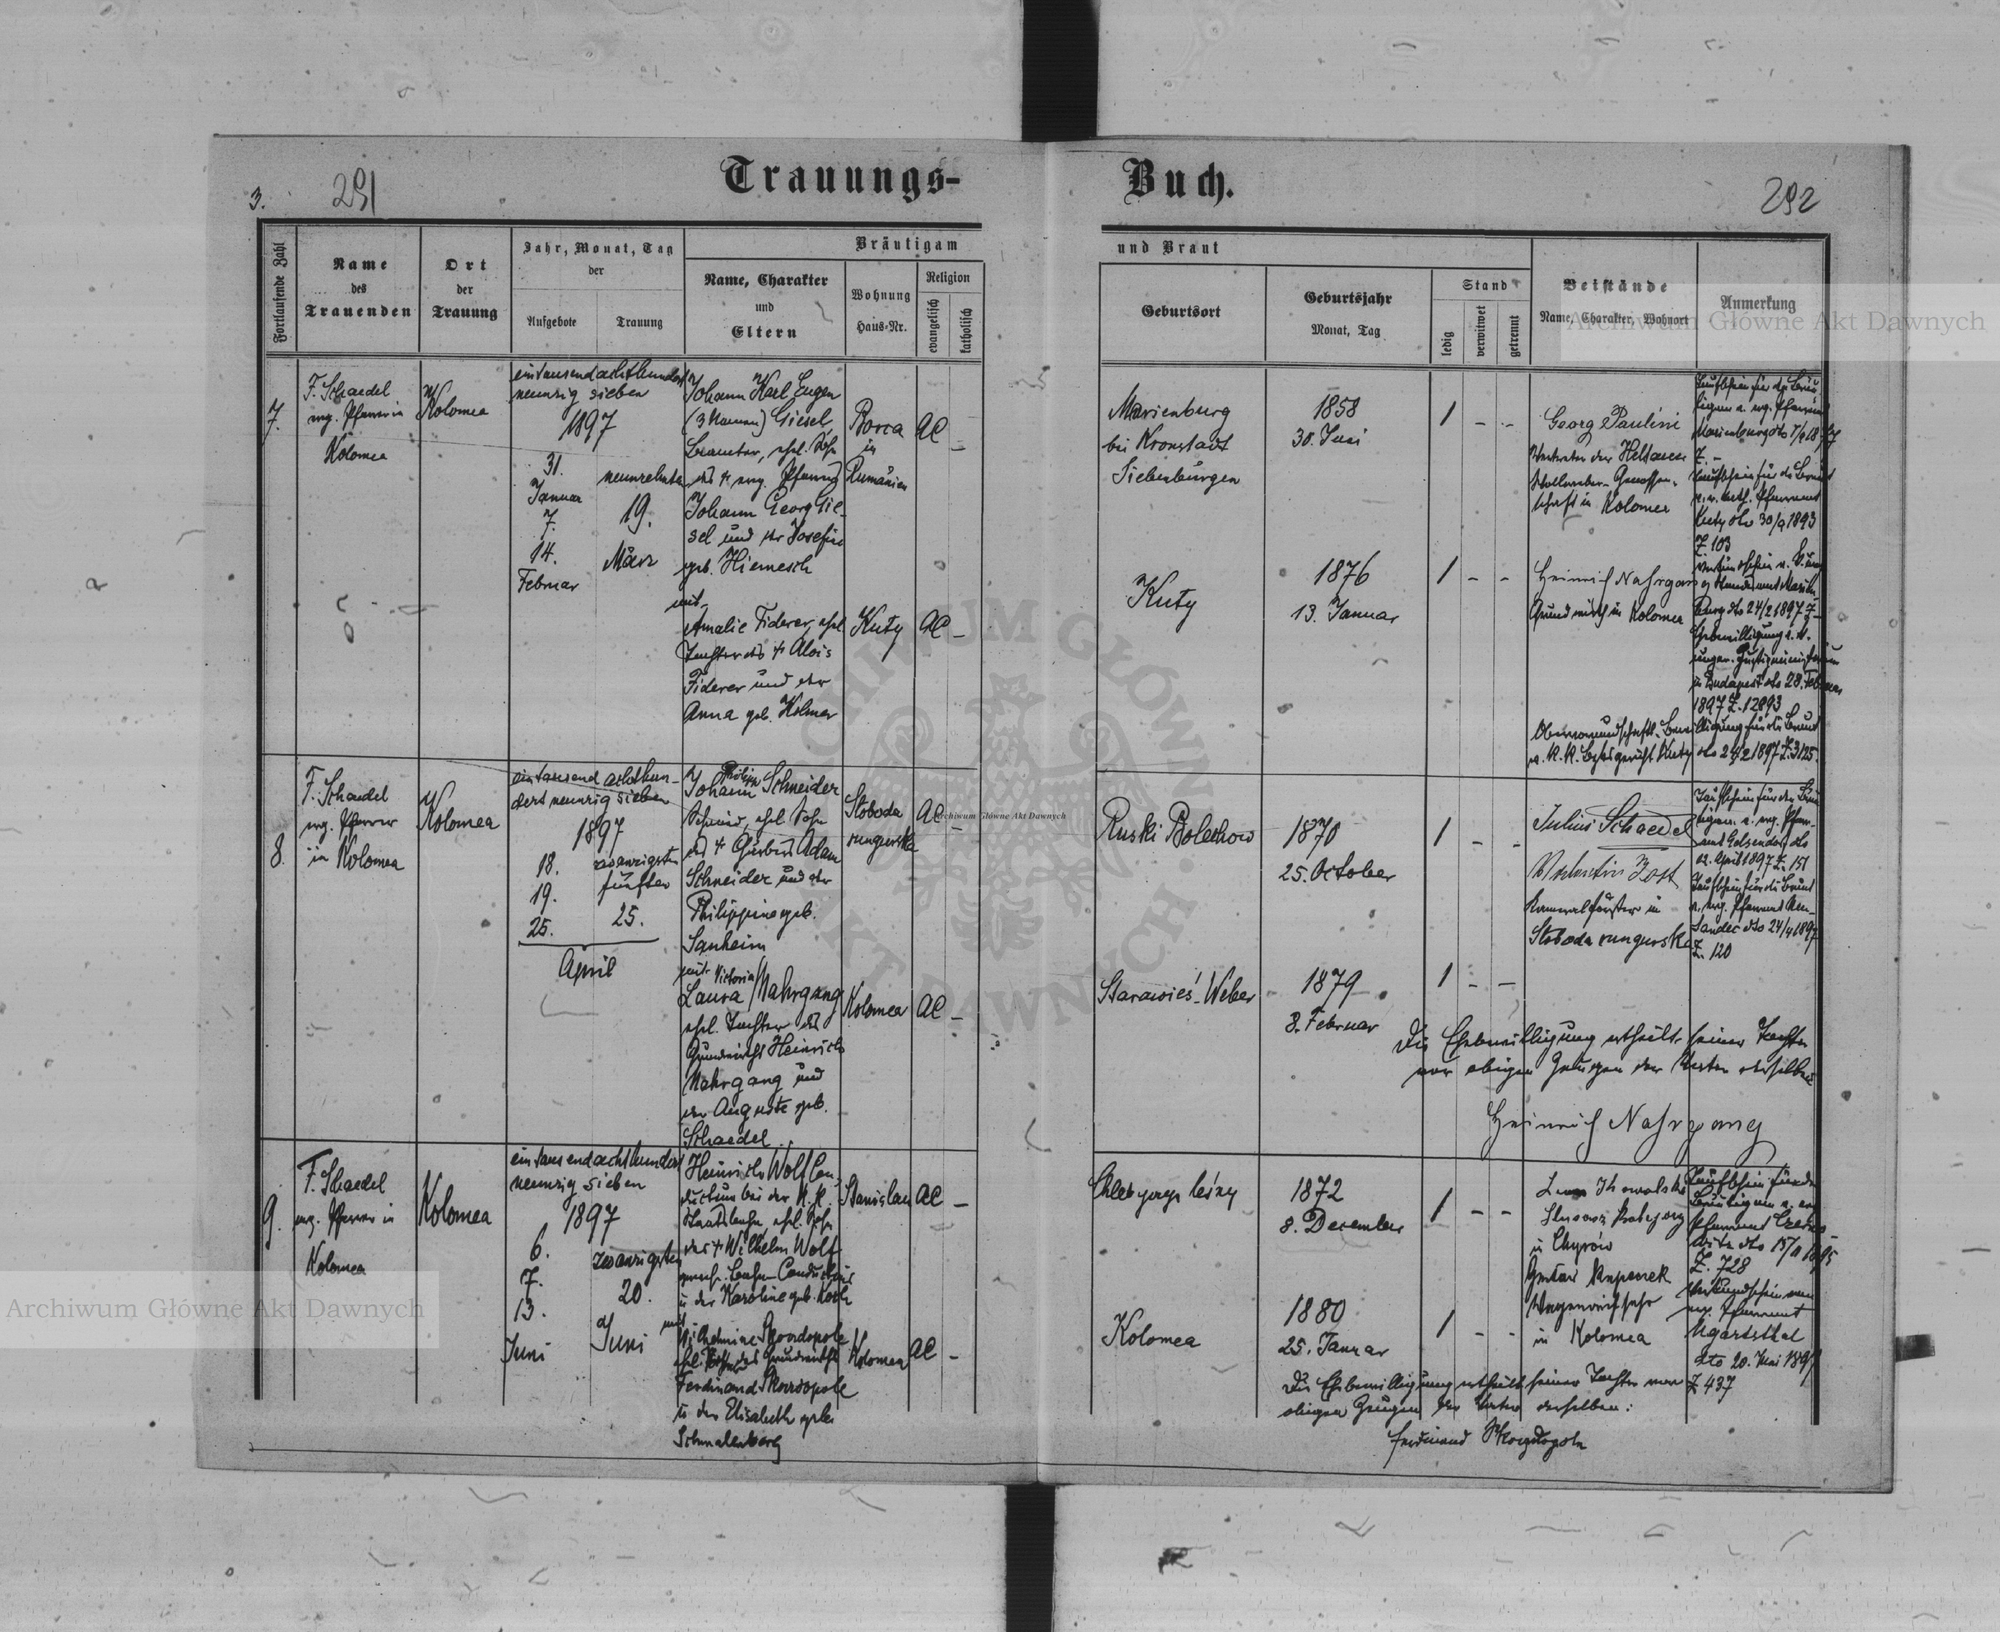 3.
291
Trauungs-
Buch.
292
Fortlaufende Zahl
Name
des
Trauenden
Ort
der
Trauung
Jahr, Monat, Tag
der
Aufgebote
Trauung
Bräutigam
Name, Charakter
und
Eltern
Wohnung
Haus-Nr.
Religion
evangelisch
katholisch
und Braut
Geburtsort
Geburtsjahr
Monat, Tag
Stand
ledig
verwitwet
getrennt
Beistände
Name, Charakter, Wohnort
Anmerkung
7.
F. Schaedel
evg. Pfarrer in
Kolomea
Kolomea
eintausendachthundert
neunzig sieben
1897
31.
Januar
7.
14.
Februar
neunzehnte
19.
März
Johann Karl Eugen
(3 Namen) Giesel,
Beamter, ehel. Sohn
des + evg. Pfarrers
Johann Georg Gie-
sel und der Josefine
geb. Hiemesch
mit
Amalie Fiderer, ehel.
Tochter des + Alois
Fiderer und der
Anna geb. Holmer
Borca
in
Rumänien
AC
-
Kuty
AC
-
Marienburg
bei Kronstadt
Siebenbürgen
1858
30. Juni
1 - -
Kuty
1876
13. Januar
1 - -
Georg Paulini
Vertreter der
Genossen-
schaft in Kolomea
Heinrich Nahrgang
Grundwirth in Kolomea
Taufschein für den Bräu-
tigam v. evg. Pfarramt
Marienburg dto
Z. -
Taufschein für die Braut
Kuty dto 30/9 1893
Z. 103
burg dto 24/2 1897 Z -
Ehebewilligung
ungar. Justizministerium
in Budapest dto 28. Februar
1897 Z. 12893
Obervormundschaftl. Bewilligung für die Braut
v. K. K. Bezksgericht Kuty dto 24/2 1897 Z. 3125.
8.
F. Schaedel
evg. Pfarrer
in Kolomea
Kolomea
eintausend achthun-
dert neunzig sieben
1897
18.
19.
25.
zwanzigsten
fünften
25.
April
Philipp
Johann Schneider
Schmied, ehel. Sohn
des + Gärbers Adam
Schneider und der
Philippine geb.
Sanheim
mit Victoria
Laura Nahrgang
ehel. Tochter des
Grundwirths Heinrich
Nahrgang und
der Auguste geb.
Schaedel
Sloboda
rungurska
AC
-
Kolomea
AC
-
Ruski Bolechow
1870
25. October
1 - -
Starawieś-Weber
1879
8. Februar
1 - -
Julius Schaedel
Valentin Jost
in
Sloboda rungurska
Taufschein für den Bräu-
tigam v. evg. Pfarr-
amt Gelsendorf dto
April 1897 Z. 151
Taufschein für die Braut
v. evg. Pfarramt Neu-
Sandec dto 24/4 1897
Z. 120
Die Ehebewilligung ertheilt seiner Tochter
vor obigen Zeugen der Vater derselben
Heinrich Nahrgang
9.
F. Schaedel
evg. Pfarrer in
Kolomea
Kolomea
eintausendachthundert
neunzig sieben
1897
6.
7.
13.
Juni
zwanzigsten
20.
Juni
Heinrich Wolf Con-
ducteur bei der K. K.
Staatsbahn, ehel. Sohn
des + Wilhelm Wolf
gewes. Bahn-Conducteurs
u. der Karoline geb. Koch
mit
Wilhelmine Skordopole
ehel. Tochter des Grundwirths
Ferdinand Skordopole
u. der Elisabeth geb.
Schmalenberg
Stanislau
AC
-
Kolomea
AC
-
Chlebyczyn leśny
1872
8. December
1 - -
Kolomea
1880
25. Januar
1 - -
in Chyrów
Gustav
in Kolomea
Taufschein für den
Bräutigam v. evg.
Pfarramt Czerno-
witz dto 15/11 1895
Z. 728
Verkündschein vom
evg. Pfarramt
Ugartsthal
dto 20. Mai 1897
Z 437
Die Ehebewilligung ertheilt seiner Tochter vor
obigen Zeugen der Vater derselben:
Ferdinand Skordopole
Archiwum Główne Akt Dawnych
Archiwum Główne Akt Dawnych
Archiwum Główne Akt Dawnych
ARCHIWUM GŁÓWNE AKT DAWNYCH